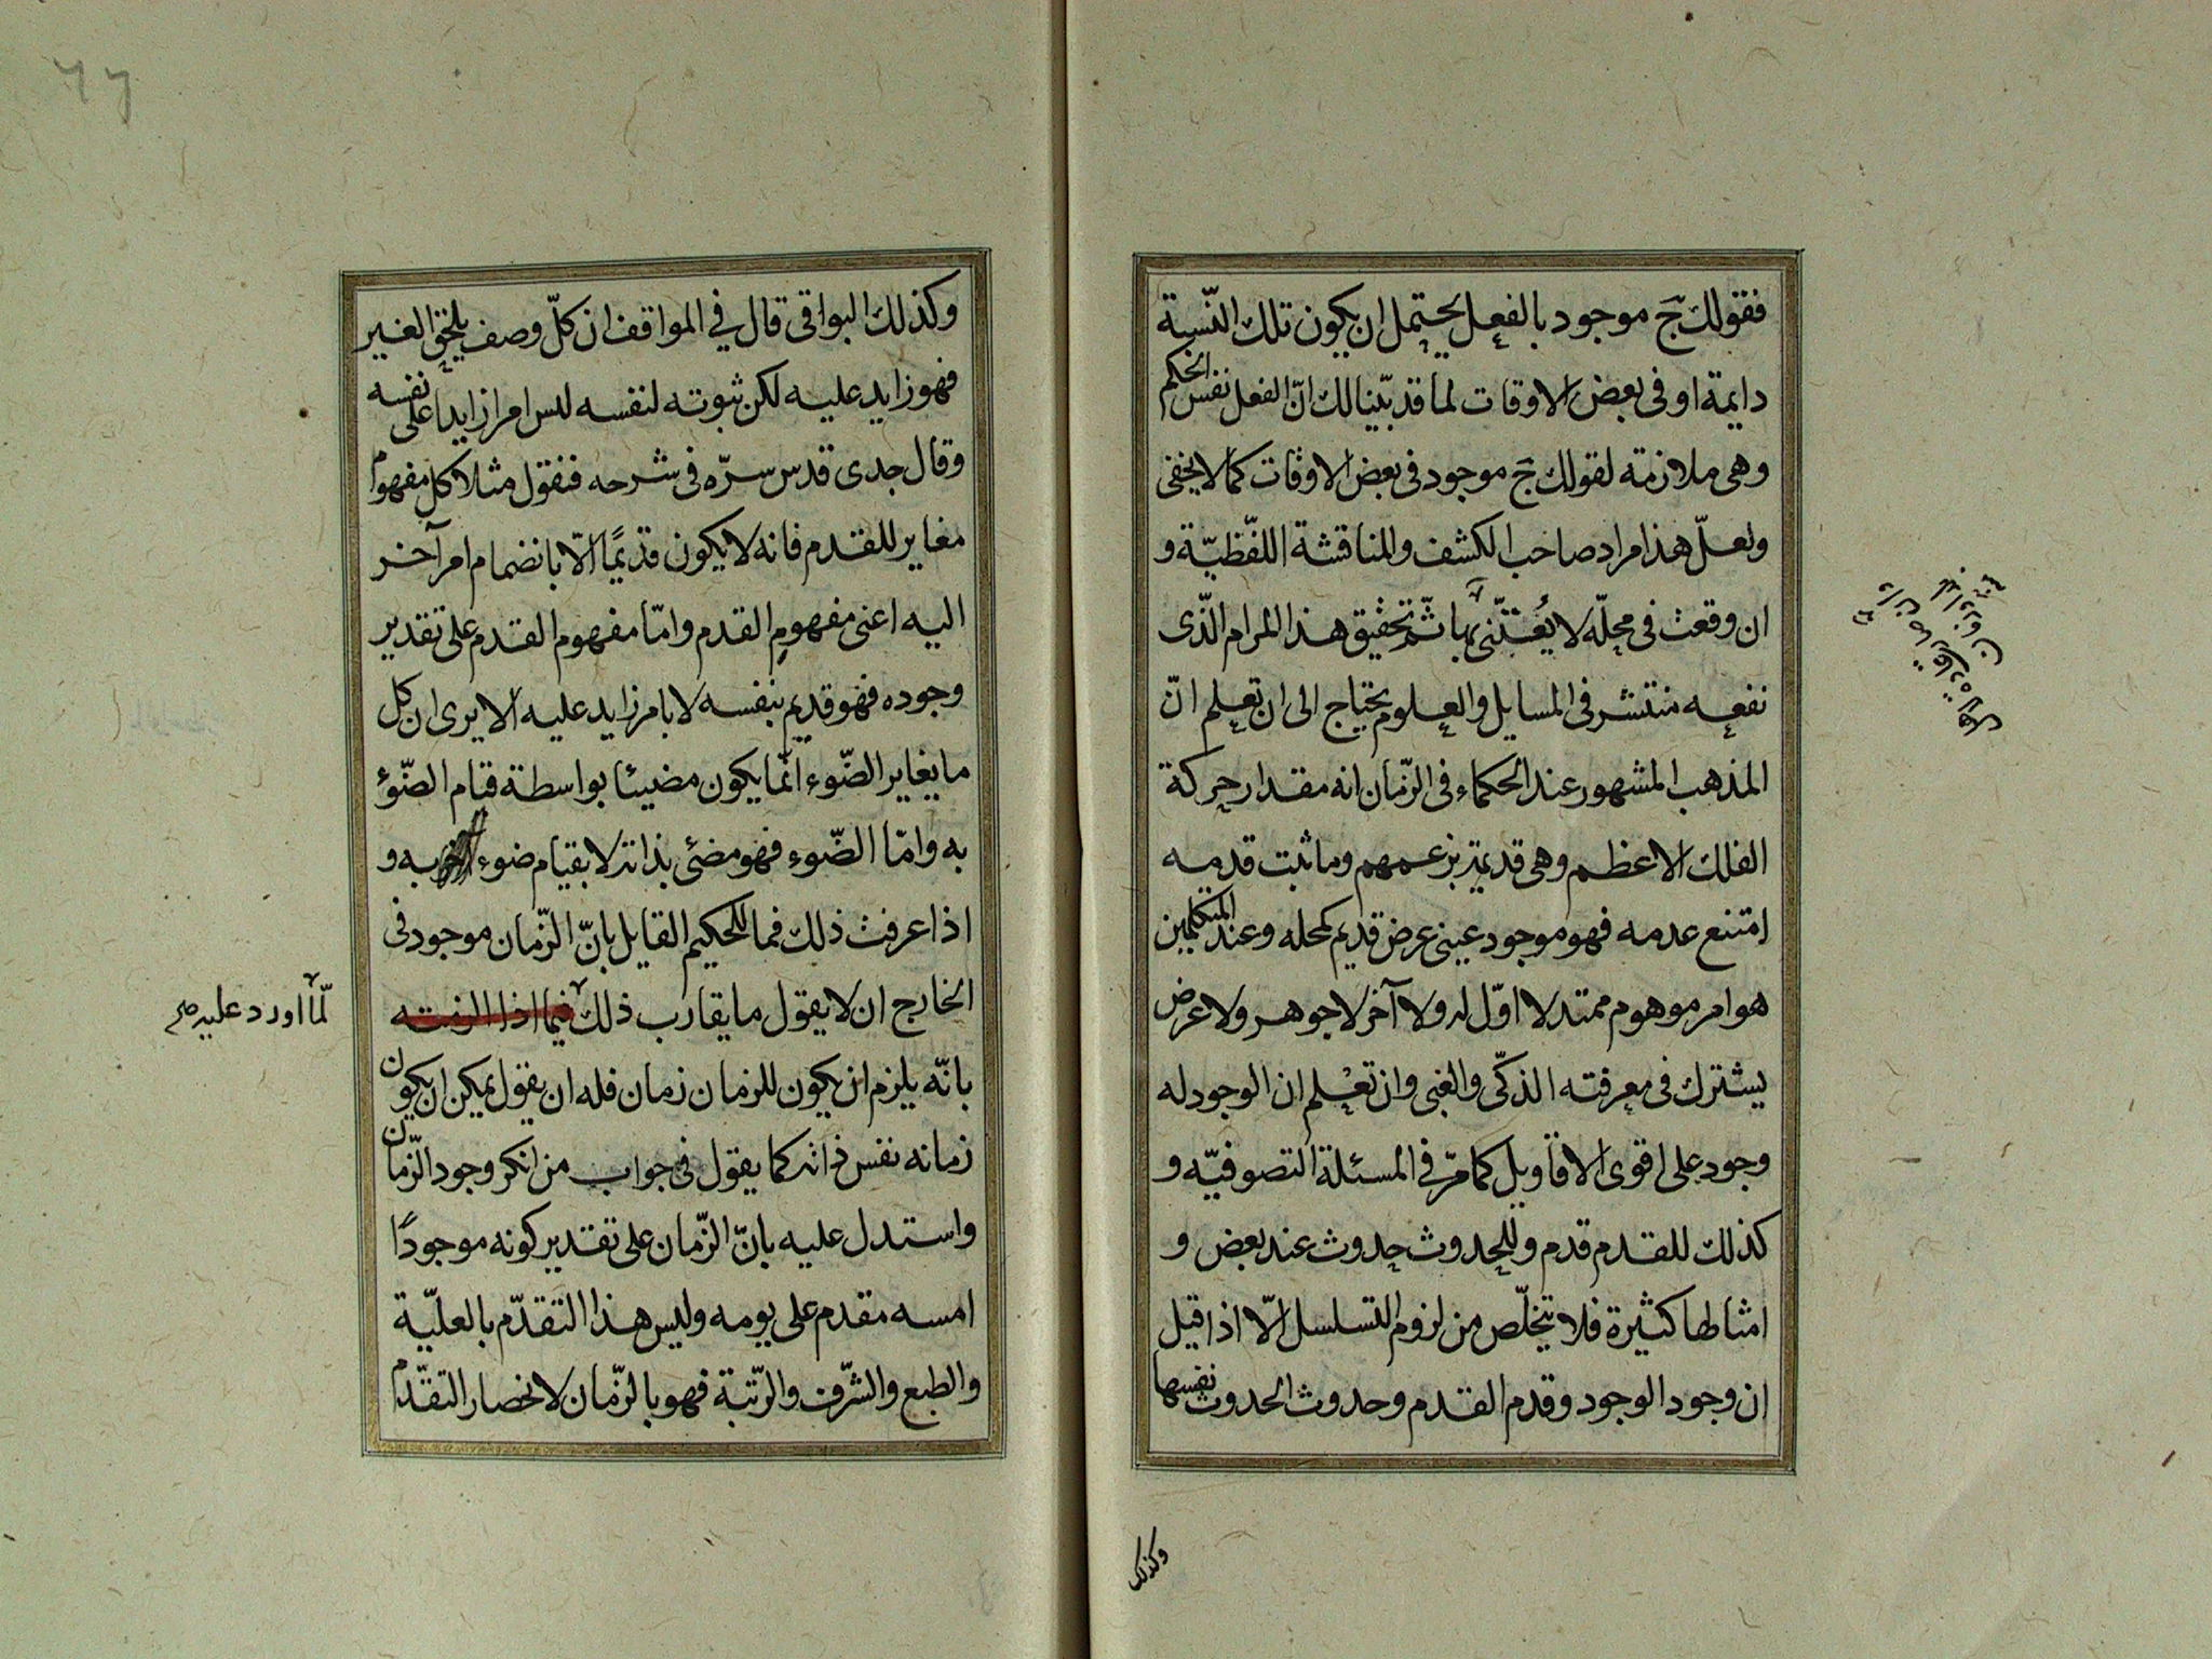 فقولك ج موجود بالفعل يحتمل ان يكون تلك النّسبة
دايمة او فى بعض الاوقات لما قد بيّنا لك انّ الفعل نفس الحكم
وهى ملازمة لقولك ج موجود فى بعض الاوقات كما لا يخفى
ولعلّ هذا مراد صاحب الكشف والمناقشة اللّفظيّة و
ان وقعت فى محلّه لا يُعتنى بها ثمّ تحقيق هذا المرام الّذى
نفعه منتشر فى المسايل والعلوم يحتاج الى ان تعلم انّ
المذهب المشهور عند الحكماء فى الزّمان انه مقدار حركة
الفلك الاعظم وهى قديمة بزعمهم وما ثبت قدمه
امتنع عدمه فهو موجود عينى عرض قديم كمحله وعند المتكلمين
هو امر موهوم ممتد لا اوّل له ولا آخر لا جوهر ولا عرض
يشترك فى معرفته الذكّى والغبى وان تعلم ان الوجود له
وجود على اقوى الاقاويل كما مرّ فى المسئلة التصوفيّه و
كذلك للقدم قدم وللحدوث حدوث عند بعض و
امثالها كثيرة فلا تخلّص من لزوم التسلسل الّا اذا قيل
ان وجود الوجود وقدم القدم وحدوث الحدوث نفسها
وكذلك
وكذلك البواقى قال فى المواقف ان كلّ وصف يلحق الغير
فهو زايد عليه لكن ثبوته لنفسه ليس امرا زايدا على نفسه
وقال جدى قدس سرّه فى شرحه فنقول مثلا كل مفهوم
مغاير للقدم فانه لا يكون قديمًا الّا بانضمام امر آخر
اليه اعنى مفهوم القدم وامّا مفهوم القدم على تقدير
وجوده فهو قديم بنفسه لا بامر زايد عليه الا يرى ان كل
ما يغاير الضّوء انّما يكون مضيئا بواسطة قيام الضّوء
به وامّا الضّوء فهو مضئى بذاته لا بقيام ضوء اخر به و
اذا عرفت ذلك فما للحكيم القايل بانّ الزّمان موجود فى
الخارج ان لا يقول ما يقارب ذلك فيما اذا الزمته
لمّا اورد عليه صح
بانّه يلزم ان يكون للزمان زمان فله ان يقول يمكن ان يكون
زمانه نفس ذاته كما يقول فى جواب من انكر وجود الزّمان
واستدل عليه بانّ الزّمان على تقدير كونه موجودًا
امسه مقدم على يومه وليس هذا التقدّم بالعليّة
والطبع والشّرف والرّتبة فهو بالزّمان لانحصار التقدّم